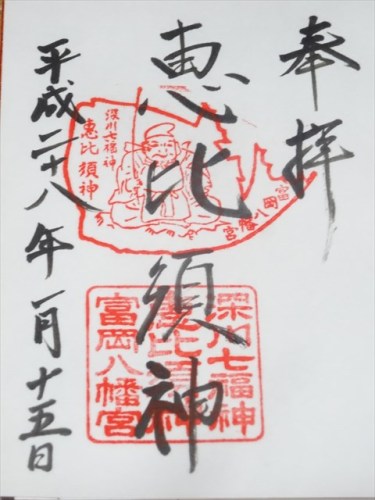 奉拝
恵比須神
平成二十八年一月十五日
深川七福神
恵比須神
富岡八幡宮
深川七福神
恵比須神
富岡八幡宮